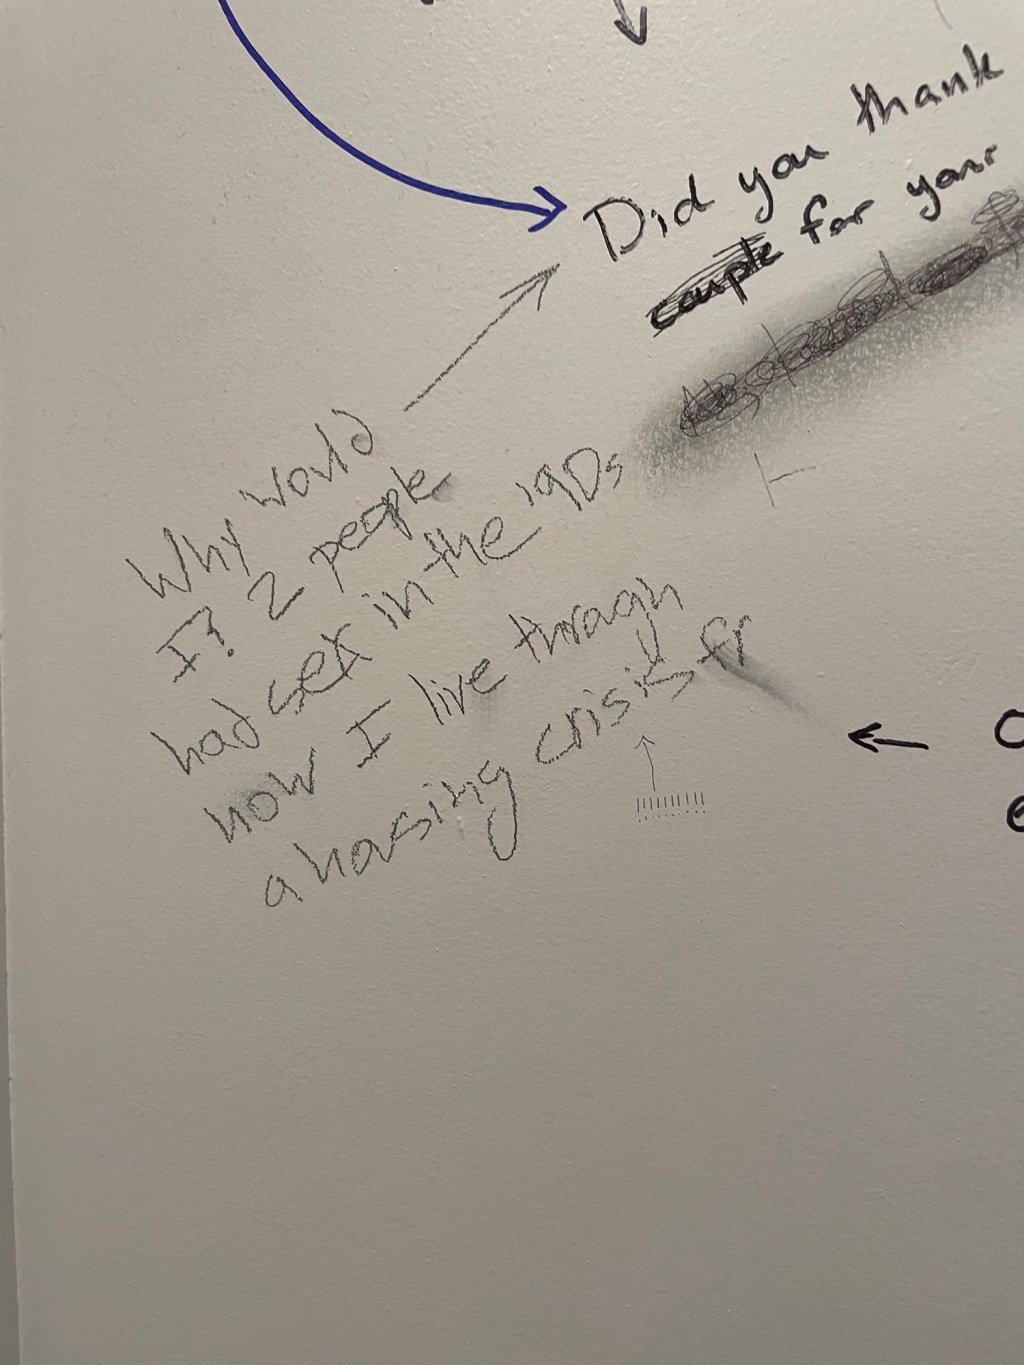 Did you thank
couple for your
Why would
I? 2 people
had sex in the '90s
now I live through
a housing crisis fr
!!!!!!!!!!